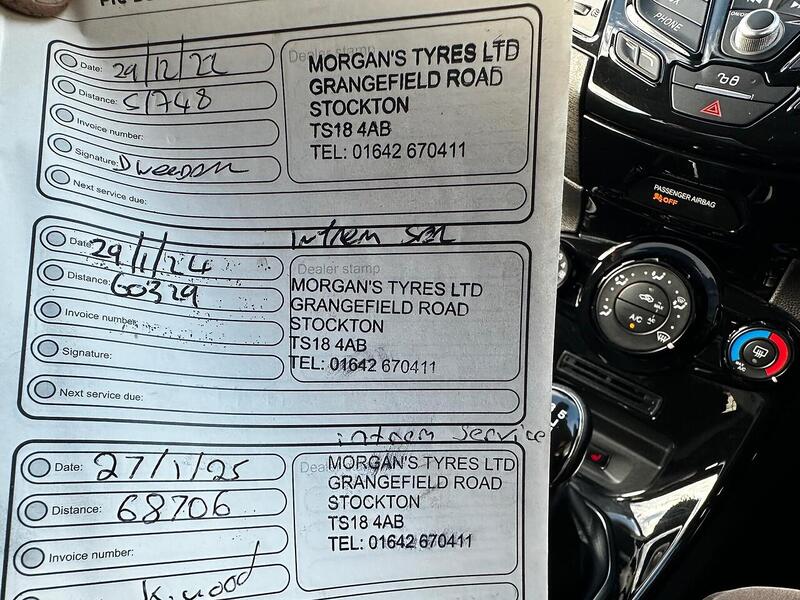 Date: 29/12/22
Distance: 51748
Invoice number:
Signature:
Next service due:
Dealer stamp
MORGAN'S TYRES LTD
GRANGEFIELD ROAD
STOCKTON
TS18 4AB
TEL: 01642 670411
Date: 29/1/24
Distance: 60329
Invoice number:
Signature:
Next service due:
Dealer stamp
MORGAN'S TYRES LTD
GRANGEFIELD ROAD
STOCKTON
TS18 4AB
TEL: 01642 670411
intrem service
Date: 27/1/25
Distance: 68706
Invoice number:
K. wood
MORGAN'S TYRES LTD
GRANGEFIELD ROAD
STOCKTON
TS18 4AB
TEL: 01642 670411
PHONE
PASSENGER AIRBAG
OFF
A/C
MAX
A/C
5